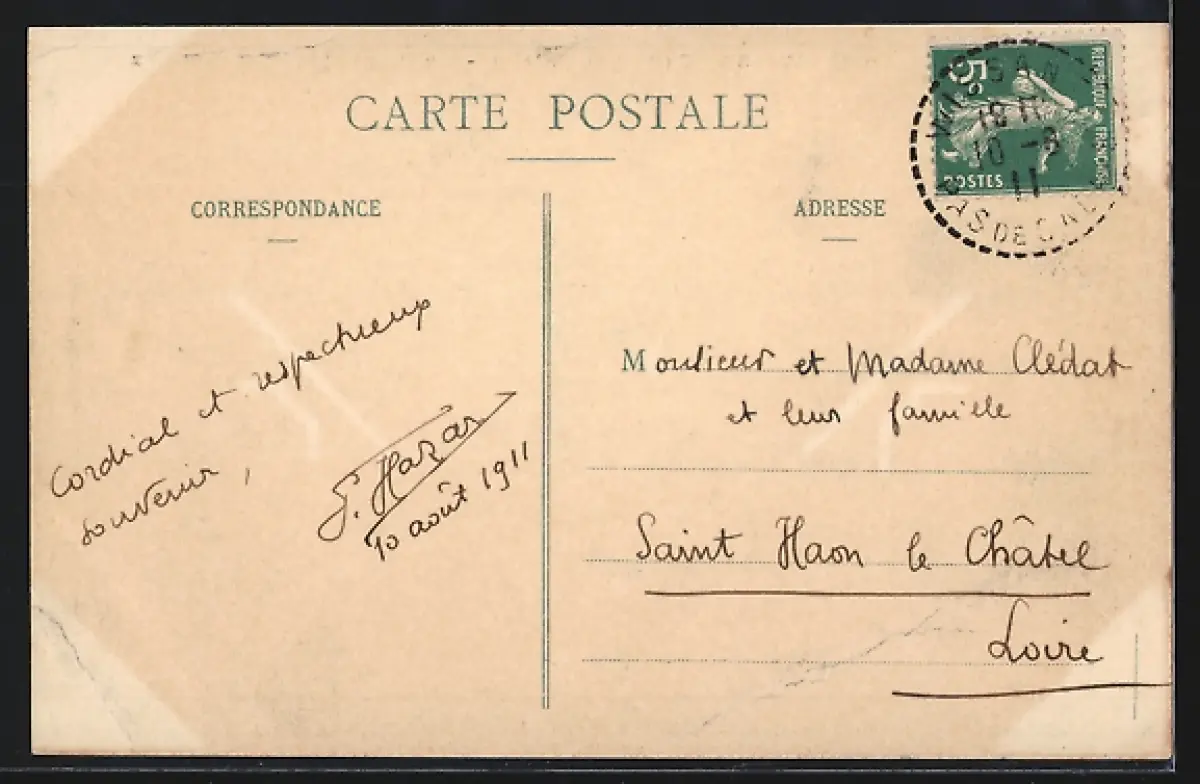 CARTE POSTALE
CORRESPONDANCE
ADRESSE
5c
REPUBLIQUE FRANÇAISE
POSTES
WISSAN
18
10 -8
11
PAS DE CAL
Cordial et respectueux
souvenir,
Hazar
10 août 1911
Monsieur et Madame Clédat
et leur famille
Saint Haon le Châtel
Loire